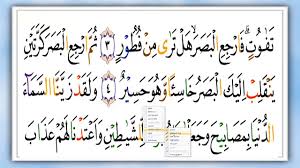 تَفٰوُتٍ ۗ فَارْجِعِ الْبَصَرَ هَلْ تَرٰى مِنْ فُطُوْرٍ ﴿٣﴾ ثُمَّ ارْجِعِ الْبَصَرَ كَرَّتَيْنِ
يَنْقَلِبْ اِلَيْكَ الْبَصَرُ خَاسِئًا وَّهُوَ حَسِيْرٌ ﴿٤﴾ وَلَقَدْ زَيَّنَّا السَّمَاۤءَ
الدُّنْيَا بِمَصَابِيْحَ وَجَعَلْ الشَّيٰطِيْنِ وَاَعْتَدْنَا لَهُمْ عَذَابَ